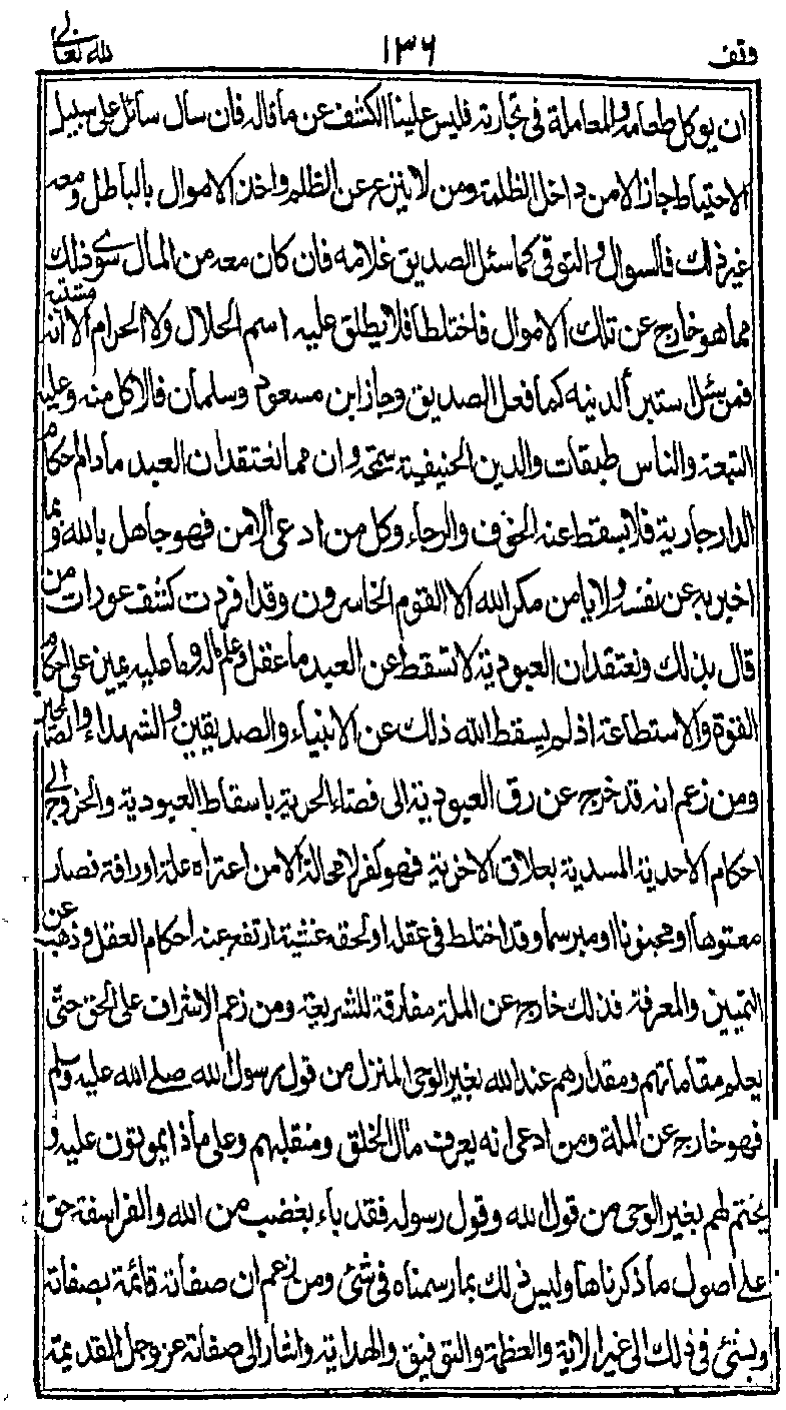 وقف ١٣٦ لله تعالى
ان يوكل طعامه والمعاملة فى تجارته فليس علينا الكشف عن ما قاله فان سال سائل على سبيل
الاحتياط جاز الا من داخل الظلمة ومن لا ينزع عن الظلم واخذ الاموال بالباطل ومعه
غير ذلك فالسوال والتوقى كما سئل الصديق غلامه فان كان معه من المال سوى ذلك
مما هو خارج عن تلك الاموال فاختلطا فلا يطلق عليه اسم الحلال ولا الحرام الا انه مشتبه
فمن سئل ستبرأ لدينه كما فعل الصديق وجاز ابن مسعود وسلمان فالاكل منه وعليه
التبعة والناس طبقات والدين الحنيفية سمحة وان مما نعتقد ان العبد مادام احكام
الدار جارية فلا يسقط عنه الخوف والرجاء وكل من ادعى الامن فهو جاهل بالله وبما
اخبر به عن نفسه ولا يامن مكر الله الا القوم الخاسرون وقد افردت كشف عورات من
قال بذلك ونعتقد ان العبودية لا تسقط عن العبد ما عقل وعلم ماله وما عليه على احكام
القوة والاستطاعة اذ لم يسقط الله ذلك عن الانبياء والصديقين والشهداء والصالحين
ومن زعم انه قد خرج عن رق العبودية الى فضاء الحرية باسقاط العبودية والخروج الى
احكام الاحدية المسدية بعلاق الاخرية فهو كفر لا محالة الا من اعتراه علة او رافة فصار
معتوها او مجنونا او مبرسما وقد اختلط فى عقله او لحقه غشية ارتفع عنه احكام العقل وذهب عن
التمييز والمعرفة فذلك خارج عن الملة مفارقة للشريعة ومن زعم الاشراف على الحق حتى
يعلم مقاماتهم ومقدارهم عند الله بغير الوحى المنزل من قول رسول الله صلے الله عليه وسلم
فهو خارج عن الملة ومن ادعى انه يعرف مال الخلق ومنقلبهم وعلى ماذا يموتون عليه و
يختم لهم بغير الوحى من قول الله وقول رسوله فقد باء بغضب من الله والفراسة حق
على اصول ما ذكرناها وليس ذلك بما رسمناه فى شئ ومن زعم ان صفاته قائمة بصفاته
ويشئ فى ذلك الى غير الاية والعظمة والتوفيق والهداية واشار الى صفاته عز وجل القديمة